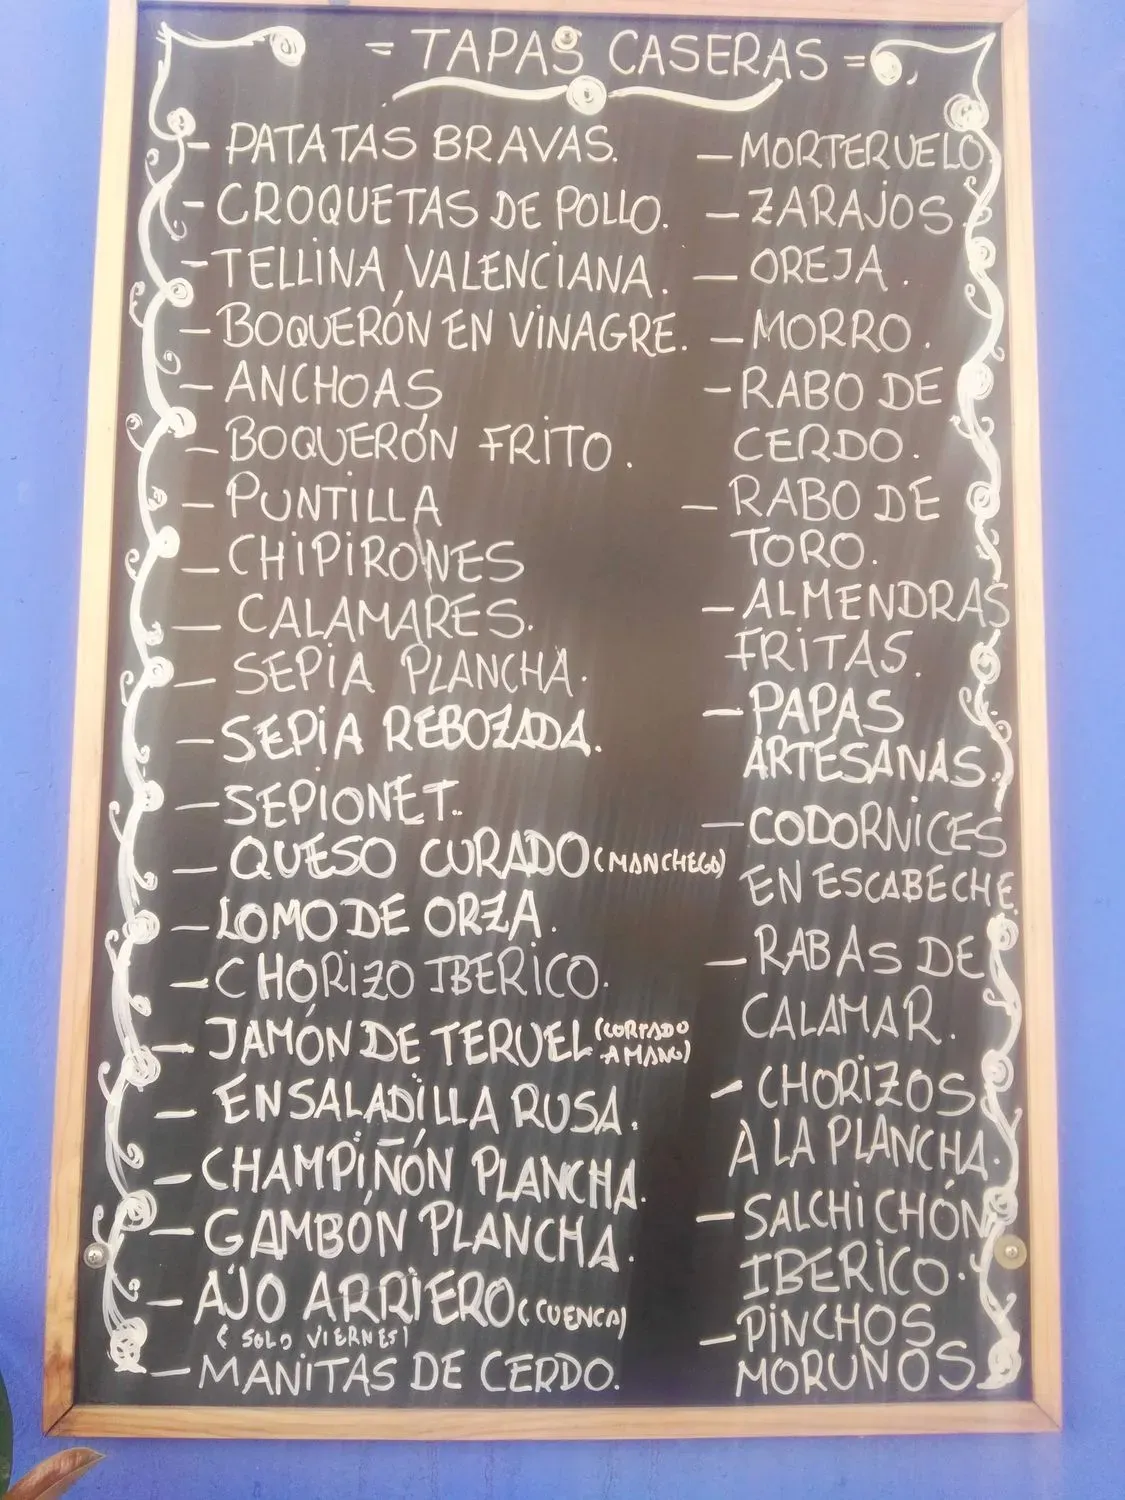 = TAPAS CASERAS =
- PATATAS BRAVAS.
- CROQUETAS DE POLLO.
- TELLINA VALENCIANA.
- BOQUERÓN EN VINAGRE.
- ANCHOAS
- BOQUERÓN FRITO.
- PUNTILLA
- CHIPIRONES
- CALAMARES.
- SEPIA PLANCHA.
- SEPIA REBOZADA.
- SEPIONET.
- QUESO CURADO (MANCHEGO)
- LOMO DE ORZA.
- CHORIZO IBERICO.
- JAMÓN DE TERUEL (CORTADO
A MANO)
- ENSALADILLA RUSA.
- CHAMPIÑÓN PLANCHA.
- GAMBÓN PLANCHA.
- AJO ARRIERO (CUENCA)
( SOLO VIERNES)
- MANITAS DE CERDO.
- MORTERUELO
- ZARAJOS.
- OREJA.
- MORRO.
- RABO DE
CERDO.
- RABO DE
TORO.
- ALMENDRAS
FRITAS.
- PAPAS
ARTESANAS.
- CODORNICES
EN ESCABECHE.
- RABAS DE
CALAMAR.
- CHORIZOS
A LA PLANCHA.
- SALCHICHÓN
IBERICO.
- PINCHOS
MORUNOS.